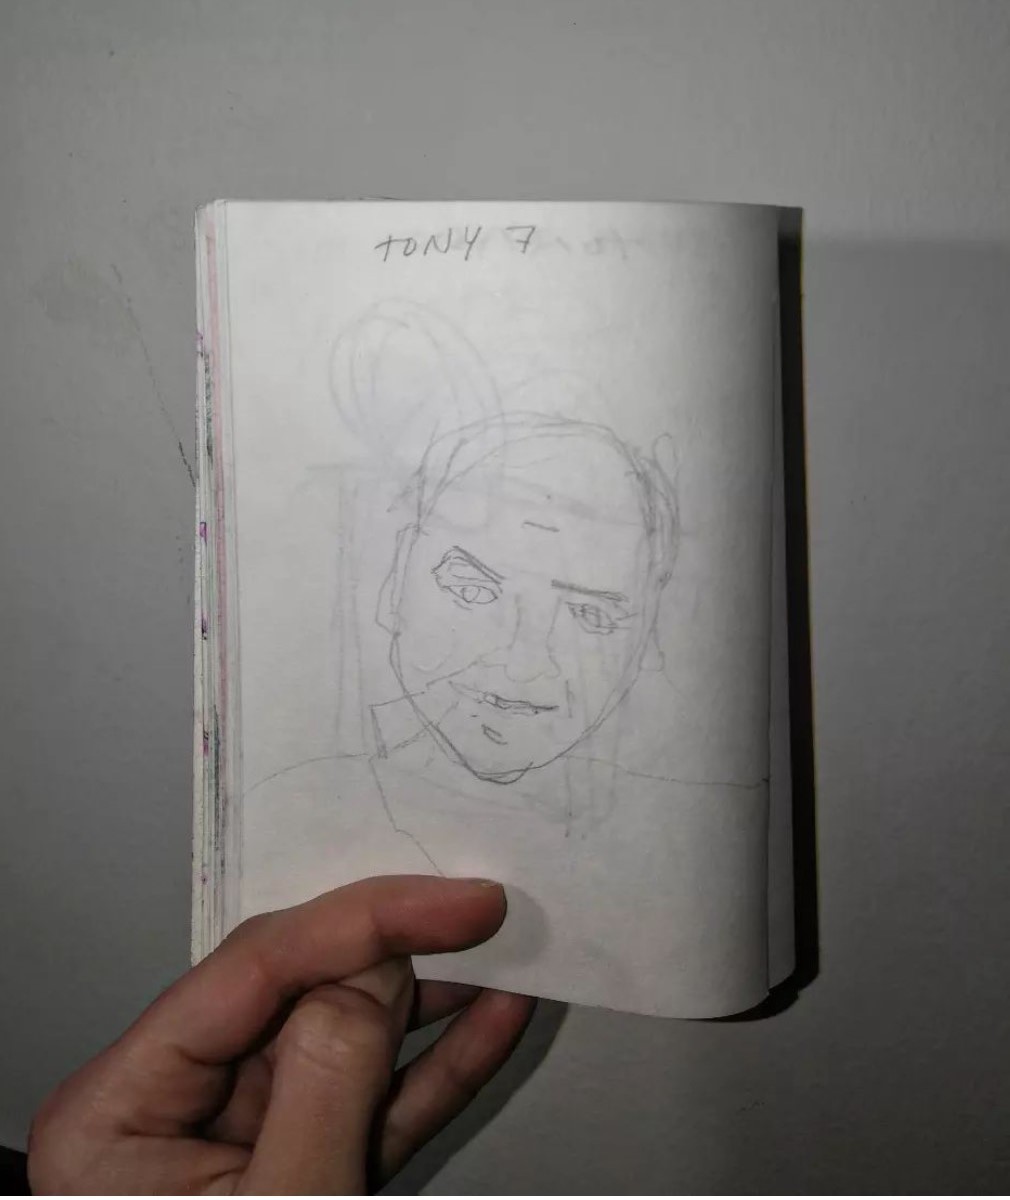 tONY 7